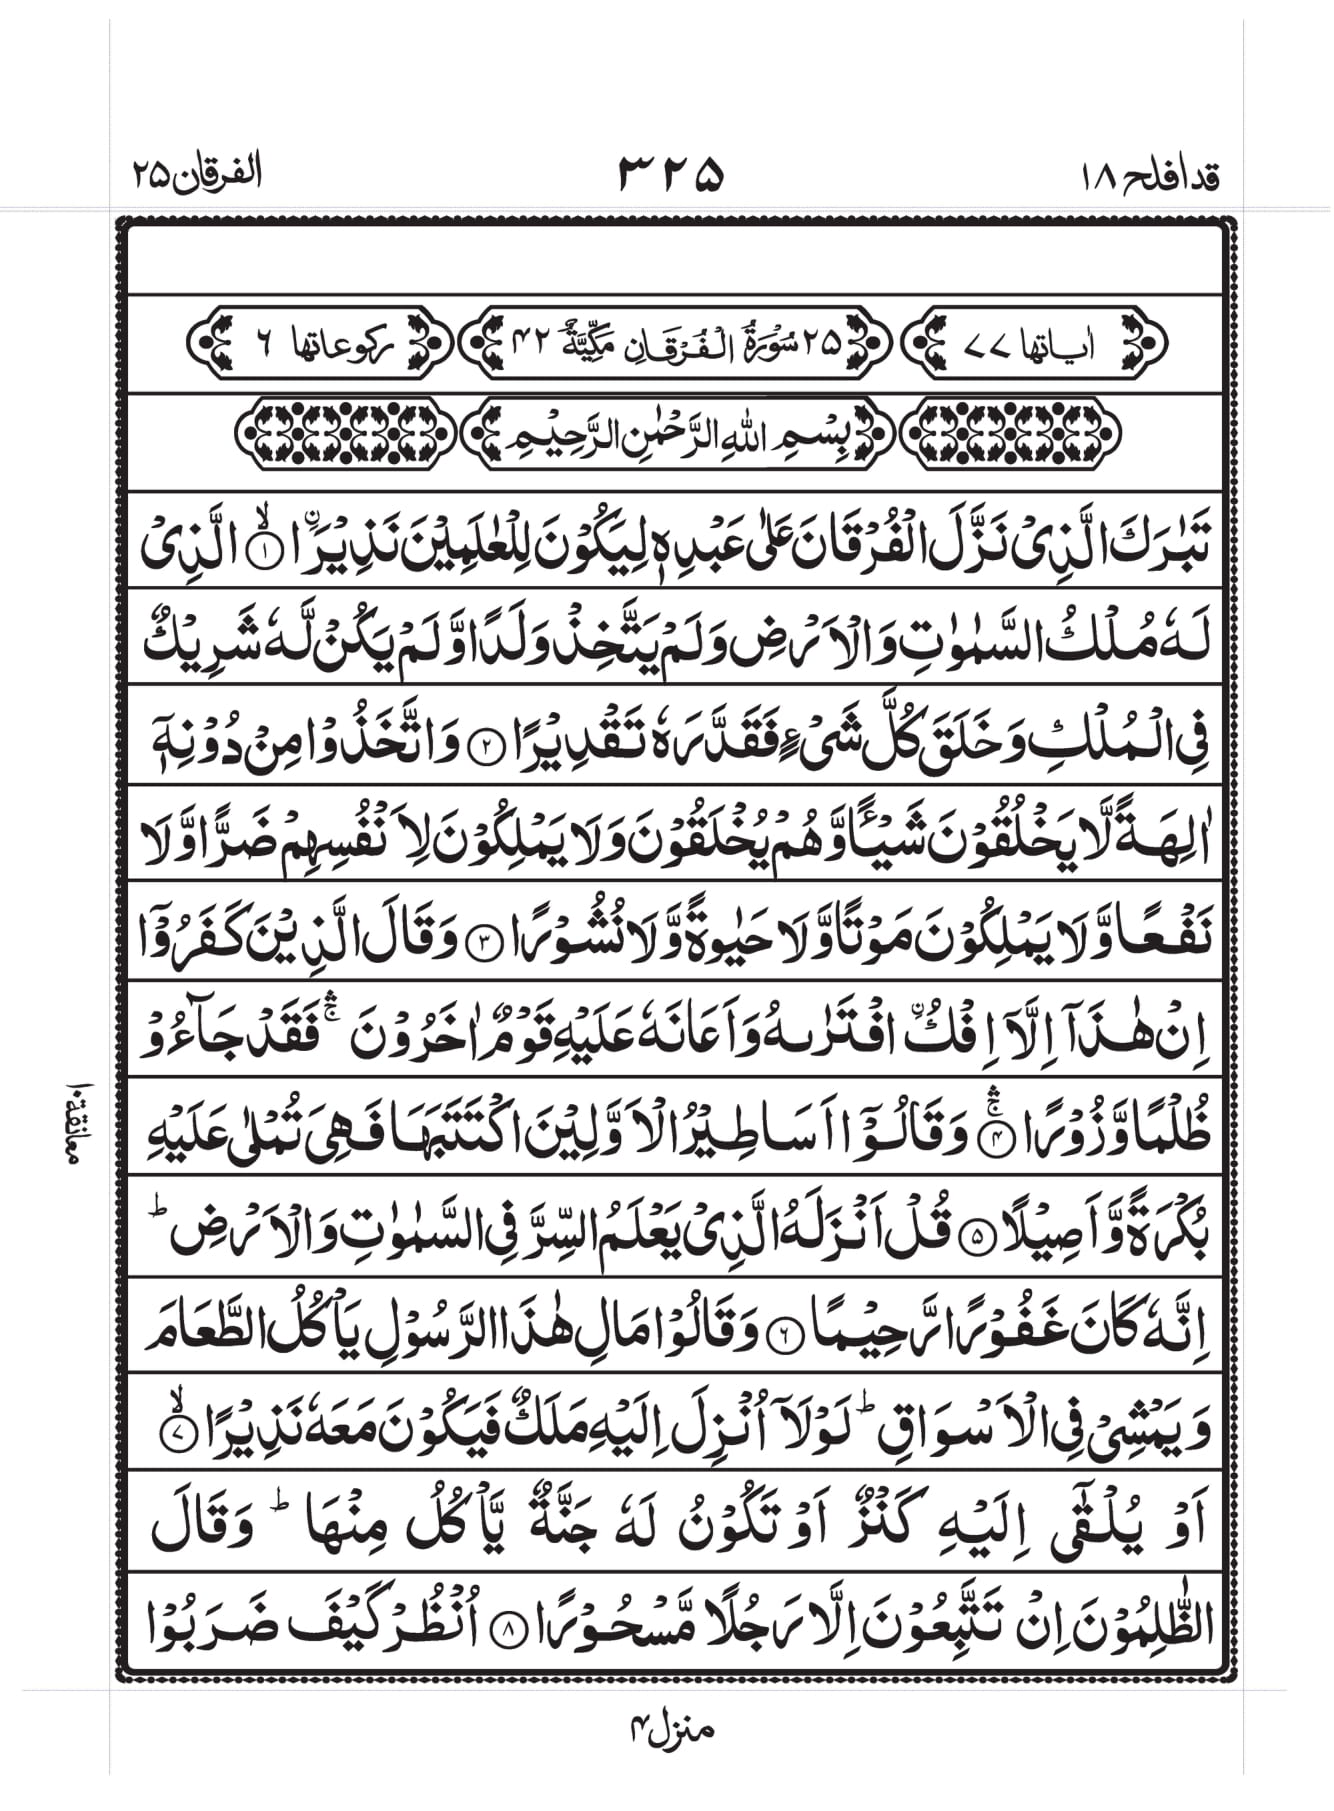 قد افلح ۱۸
۳۲۵
الفرقان ۲۵
اٰیاتها ۷۷
۲۵ سُوْرَةُ الْفُرْقَانِ مَكِّیَّةٌ ۴۲
ركوعاتها ۶
بِسْمِ اللّٰهِ الرَّحْمٰنِ الرَّحِیْمِ
تَبٰرَكَ الَّذِیْ نَزَّلَ الْفُرْقَانَ عَلٰی عَبْدِهٖ لِیَكُوْنَ لِلْعٰلَمِیْنَ نَذِیْرَاۨ ۙ﴿۱﴾ الَّذِیْ
لَهٗ مُلْكُ السَّمٰوٰتِ وَالْاَرْضِ وَلَمْ یَتَّخِذْ وَلَدًا وَّلَمْ یَكُنْ لَّهٗ شَرِیْكٌ
فِی الْمُلْكِ وَخَلَقَ كُلَّ شَیْءٍ فَقَدَّرَهٗ تَقْدِیْرًا ﴿۲﴾ وَاتَّخَذُوْا مِنْ دُوْنِهٖۤ
اٰلِهَةً لَّا یَخْلُقُوْنَ شَیْـًٔا وَّهُمْ یُخْلَقُوْنَ وَلَا یَمْلِكُوْنَ لِاَنْفُسِهِمْ ضَرًّا وَّلَا
نَفْعًا وَّلَا یَمْلِكُوْنَ مَوْتًا وَّلَا حَیٰوةً وَّلَا نُشُوْرًا ﴿۳﴾ وَقَالَ الَّذِیْنَ كَفَرُوْۤا
اِنْ هٰذَاۤ اِلَّاۤ اِفْكُۨ افْتَرٰىهُ وَاَعَانَهٗ عَلَیْهِ قَوْمٌ اٰخَرُوْنَ ۛۚ فَقَدْ جَآءُوْ
ظُلْمًا وَّزُوْرًا ۛۚ﴿۴﴾ وَقَالُوْۤا اَسَاطِیْرُ الْاَوَّلِیْنَ اكْتَتَبَهَا فَهِیَ تُمْلٰی عَلَیْهِ
معانقة ۱۰
بُكْرَةً وَّاَصِیْلًا ﴿۵﴾ قُلْ اَنْزَلَهُ الَّذِیْ یَعْلَمُ السِّرَّ فِی السَّمٰوٰتِ وَالْاَرْضِ ؕ
اِنَّهٗ كَانَ غَفُوْرًا رَّحِیْمًا ﴿۶﴾ وَقَالُوْا مَالِ هٰذَا الرَّسُوْلِ یَاْكُلُ الطَّعَامَ
وَیَمْشِیْ فِی الْاَسْوَاقِ ؕ لَوْلَاۤ اُنْزِلَ اِلَیْهِ مَلَكٌ فَیَكُوْنَ مَعَهٗ نَذِیْرًا ۙ﴿۷﴾
اَوْ یُلْقٰۤی اِلَیْهِ كَنْزٌ اَوْ تَكُوْنُ لَهٗ جَنَّةٌ یَّاْكُلُ مِنْهَا ؕ وَقَالَ
الظّٰلِمُوْنَ اِنْ تَتَّبِعُوْنَ اِلَّا رَجُلًا مَّسْحُوْرًا ﴿۸﴾ اُنْظُرْ كَیْفَ ضَرَبُوْا
منزل ۴